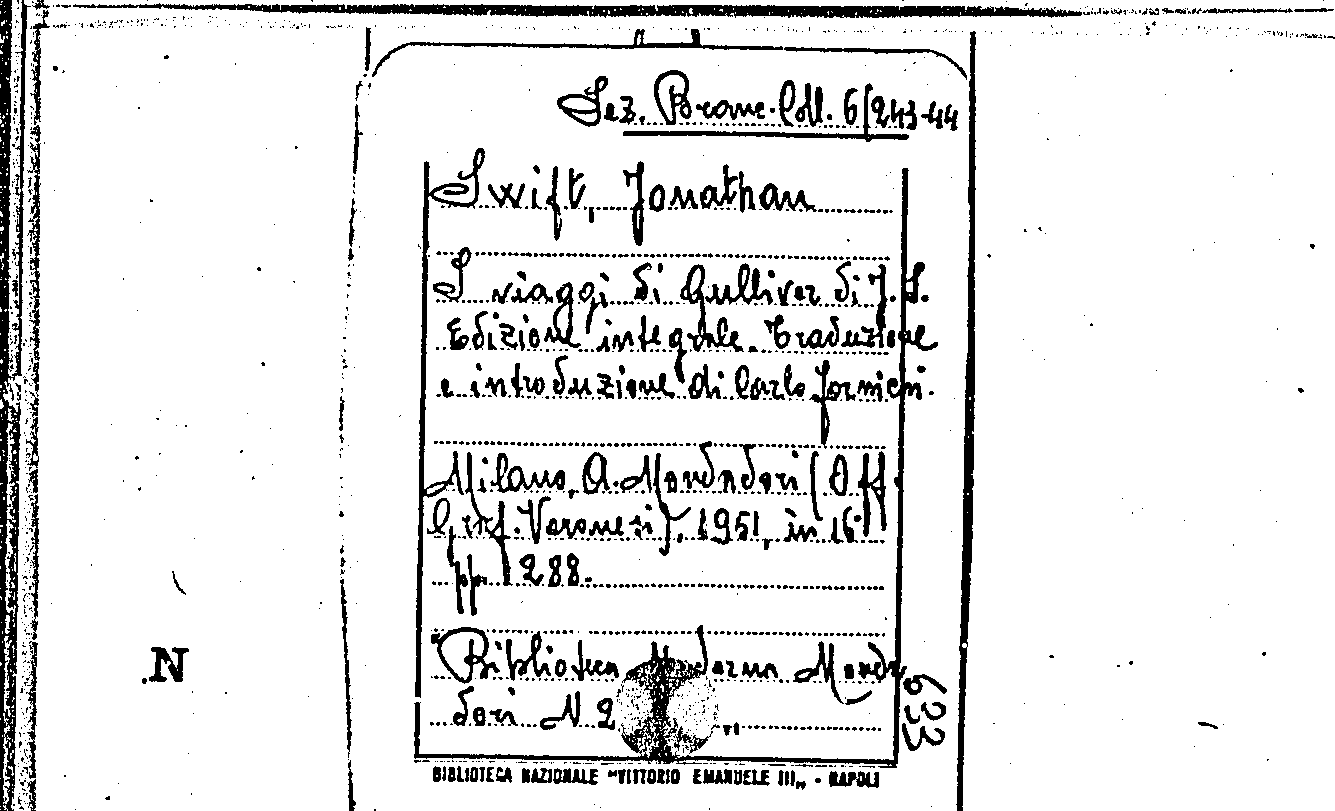 Sez. Branc. Coll. 6/243-44
Swift, Jonathan
I viaggi di Gulliver di J. S.
Edizione integrale. Traduzione
e introduzione di Carlo Formichi.
Milano, A. Mondadori (Off.
Graf. Veronesi), 1951, in 16°
pp. 288.
Biblioteca Moderna Monda
dori N 2
633
N
BIBLIOTECA NAZIONALE "VITTORIO EMANUELE III„ - NAPOLI